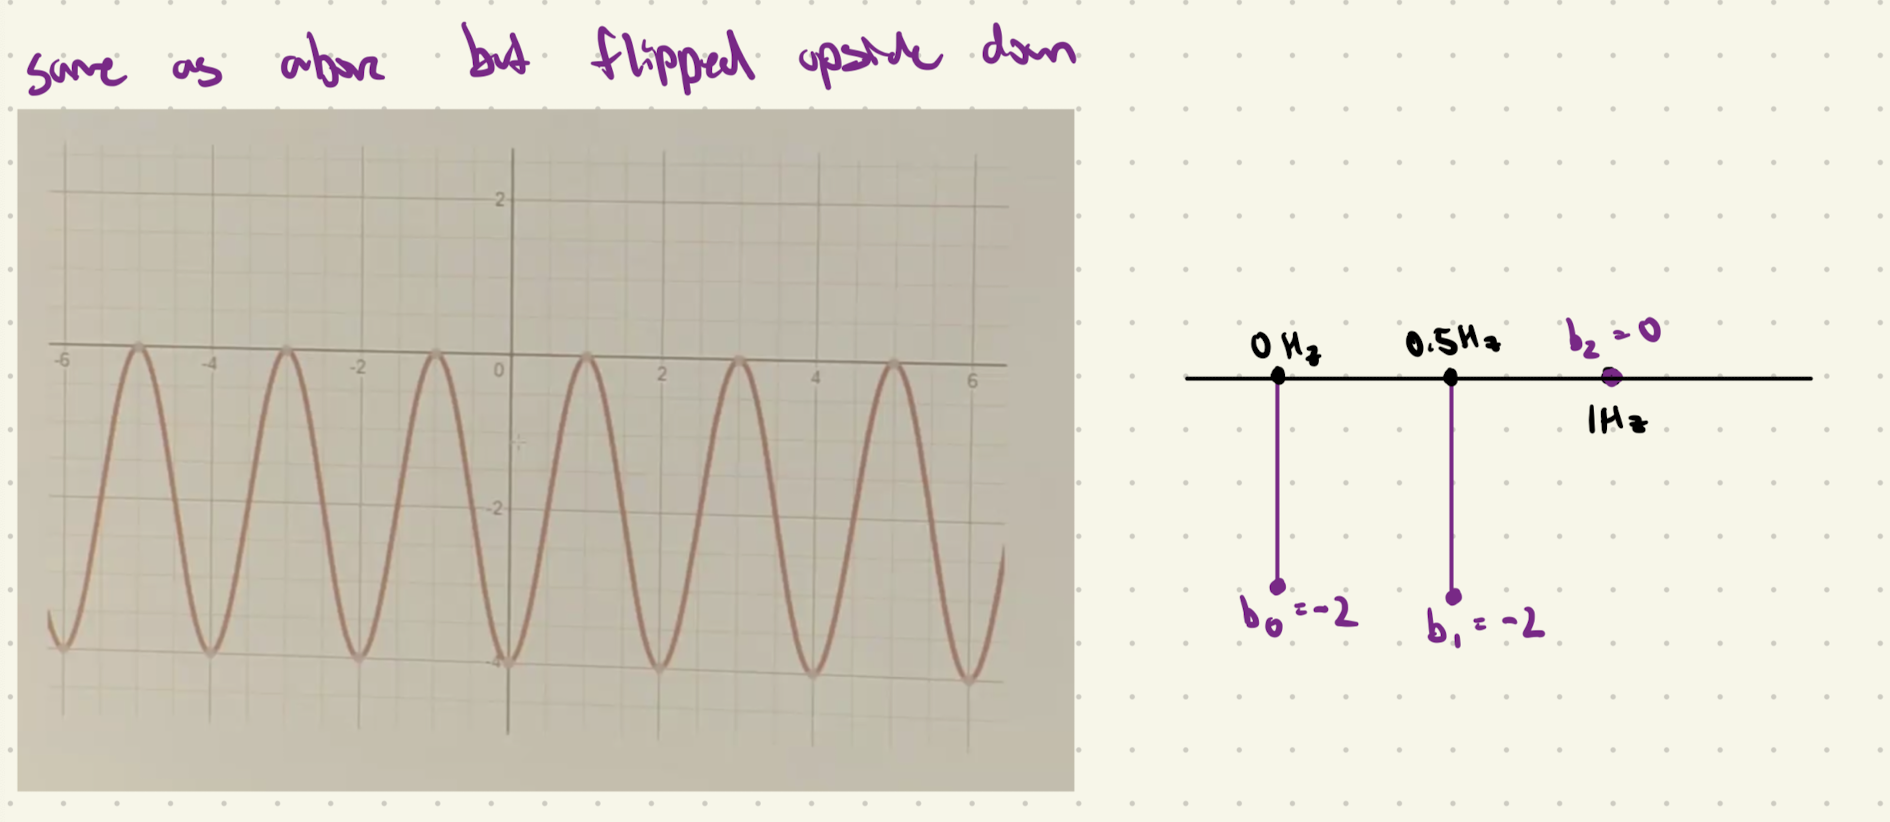 same as above but flipped upside down
2
-6 -4 -2 0 2 4 6
-2
-4
0 Hz 0.5Hz b₂ = 0
1Hz
b₀ = -2 b₁ = -2